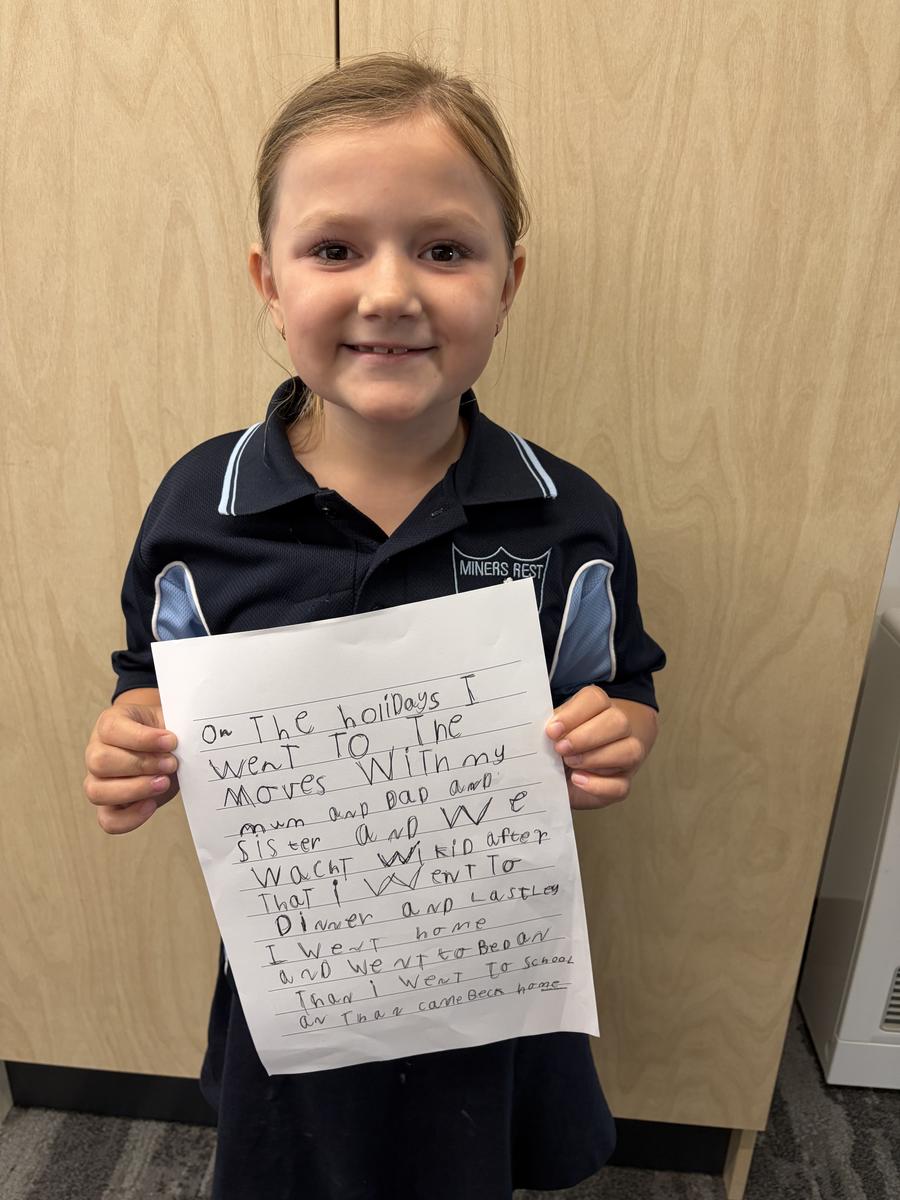 MINERS REST
On The holiDays I
went TO The
moves With my
mum anD DaD anD
Sister anD We
Wacht WikiD after
That i Went To
Dinner anD LastLey
I Went home
anD went to BeD an
Than i went To School
an Than came Beck home